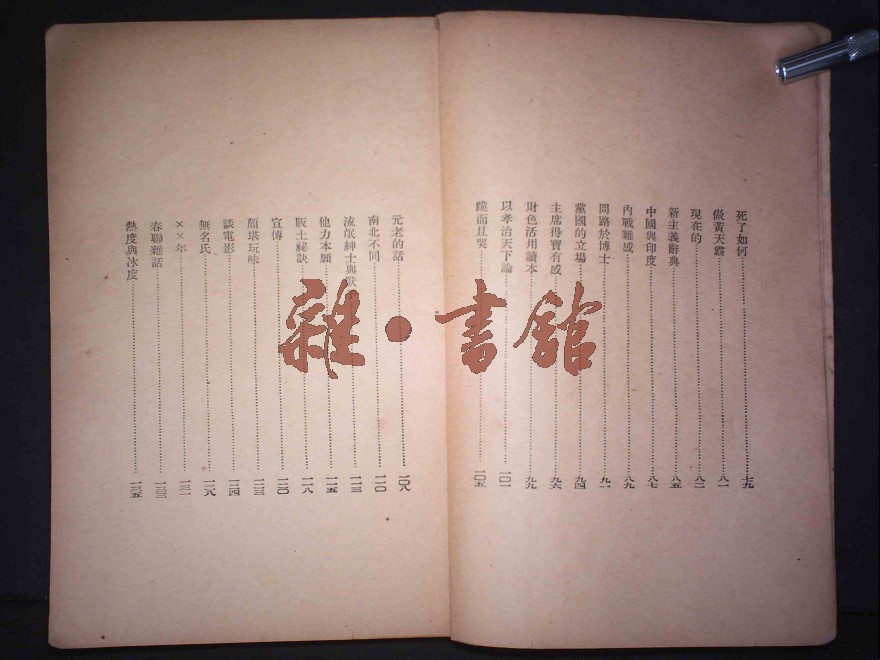 死了如何……七九
做黃天霸……八一
現在的……八二
新主義辭典……八五
中國與印度……八七
內戰雜感……八九
問路於博士……九一
黨國的立場……九四
主席得寶有感……九六
財色活用讀本……九九
以孝治天下論……一〇一
跪而且哭……一〇五
元老的話……一〇八
南北不同……一一〇
流氓紳士與獸……一一三
他力本願……一一五
販土祕訣……一一八
宣傳……一二〇
頗堪玩味……一二三
談電影……一二四
無名氏……一二八
××年……一三一
春聯雜話……一三三
熱度與冰度……一三五
雜·書館